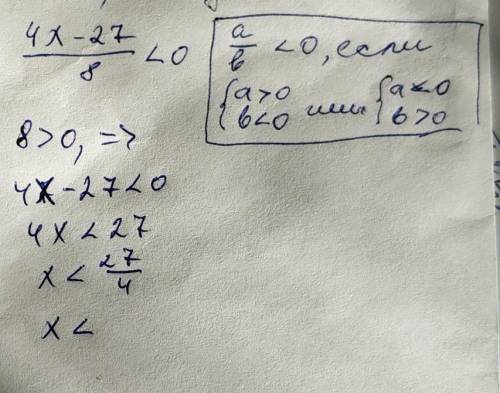 4x - 27 / 8 < 0
a / b < 0, если
{ a > 0 или { a < 0
{ b < 0 { b > 0
8 > 0, =>
4x - 27 < 0
4x < 27
x < 27 / 4
x <